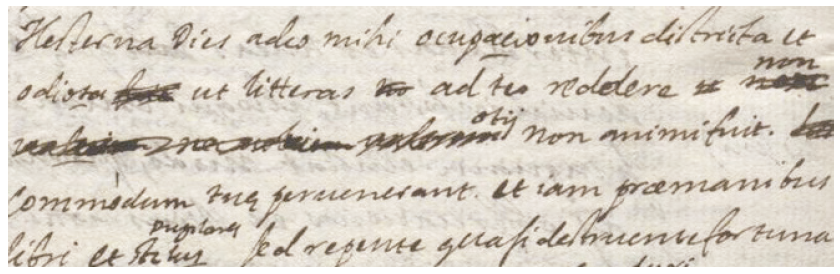 Hesterna Dies adeo mihi ocupacionibus districta et
odiosa ut litteras ad te reddere non
otij non animi fuit.
commodum tuę peruenerant. et iam præmanibus
libri et pugilares sed repente quasi destruente fortuna